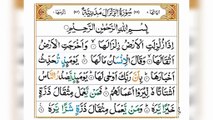 سُورَةُ الزِّلْزَالِ مَدَنِيَّةٌ
بِسْمِ اللَّهِ الرَّحْمَٰنِ الرَّحِيمِ
إِذَا زُلْزِلَتِ الْأَرْضُ زِلْزَالَهَا وَأَخْرَجَتِ الْأَرْضُ
أَثْقَالَهَا وَقَالَ الْإِنسَانُ مَا لَهَا يَوْمَئِذٍ تُحَدِّثُ
أَخْبَارَهَا بِأَنَّ رَبَّكَ أَوْحَىٰ لَهَا يَوْمَئِذٍ يَصْدُرُ النَّاسُ
أَشْتَاتًا لِّيُرَوْا أَعْمَالَهُمْ فَمَن يَعْمَلْ مِثْقَالَ ذَرَّةٍ
خَيْرًا يَرَهُ وَمَن يَعْمَلْ مِثْقَالَ ذَرَّةٍ شَرًّا يَرَهُ